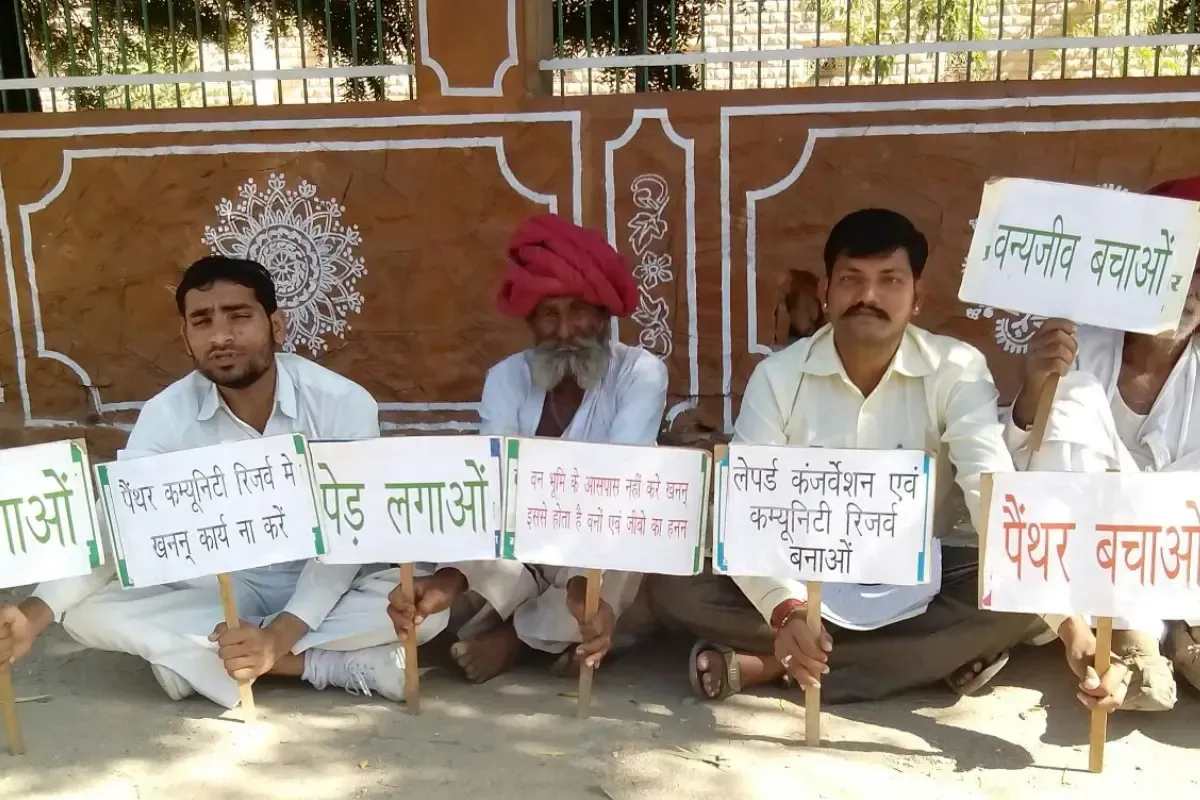 गाओं
पैंथर कम्यूनिटि रिजर्व मे
खनन् कार्य ना करें
पेड़ लगाओं
वन भूमि के आसपास नहीं करे खनन्
इससे होता है वनों एवं जीवों का हनन
लेपर्ड कंजर्वेशन एवं
कम्यूनिटि रिजर्व
बनाओं
वन्यजीव बचाओं
पैंथर बचाओ